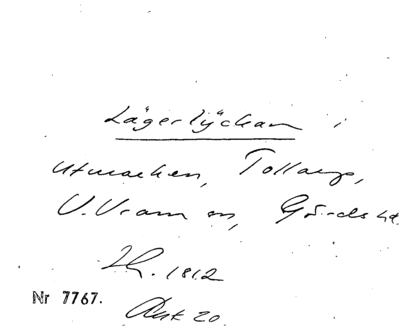 Lägerlyckan i
utmarken, Tollarp,
V. Vram sn, Gärds hd.
LK. 1812
Akt 20.
Nr 7767.